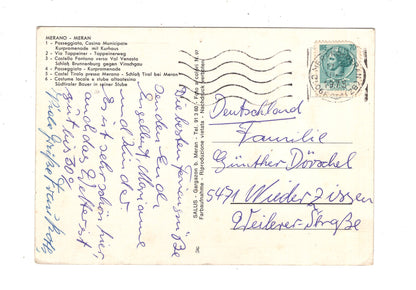 MERANO - MERAN
1 - Passeggiata, Casino Municipale
Kurpromenade mit Kurhaus
2 - Via Tappeiner - Tappeinerweg
3 - Castello Fontana verso Val Venosta
Schloß Brunnenburg gegen Vinschgau
4 - Passeggiata - Kurpromenade
5 - Castel Tirolo presso Merano - Schloß Tirol bei Meran
6 - Costume locale e stube altoatesina
Südtiroler Bauer in seiner Stube
Die besten Feriengrüße
senden Euch
Engelbert, Marianne
und Kinder
Es ist sehr schön hier,
auch das Wetter ist
gut bis 30°
Viele Grüße Frau Roth
SALUS - Gargazon b. Meran - Tel.
Farbaufnahme - Riproduzione vietata - Nachdruck verboten
Deutschland
Familie
Günther Dörschel
5471 Niederzissen
Weilerer-Straße